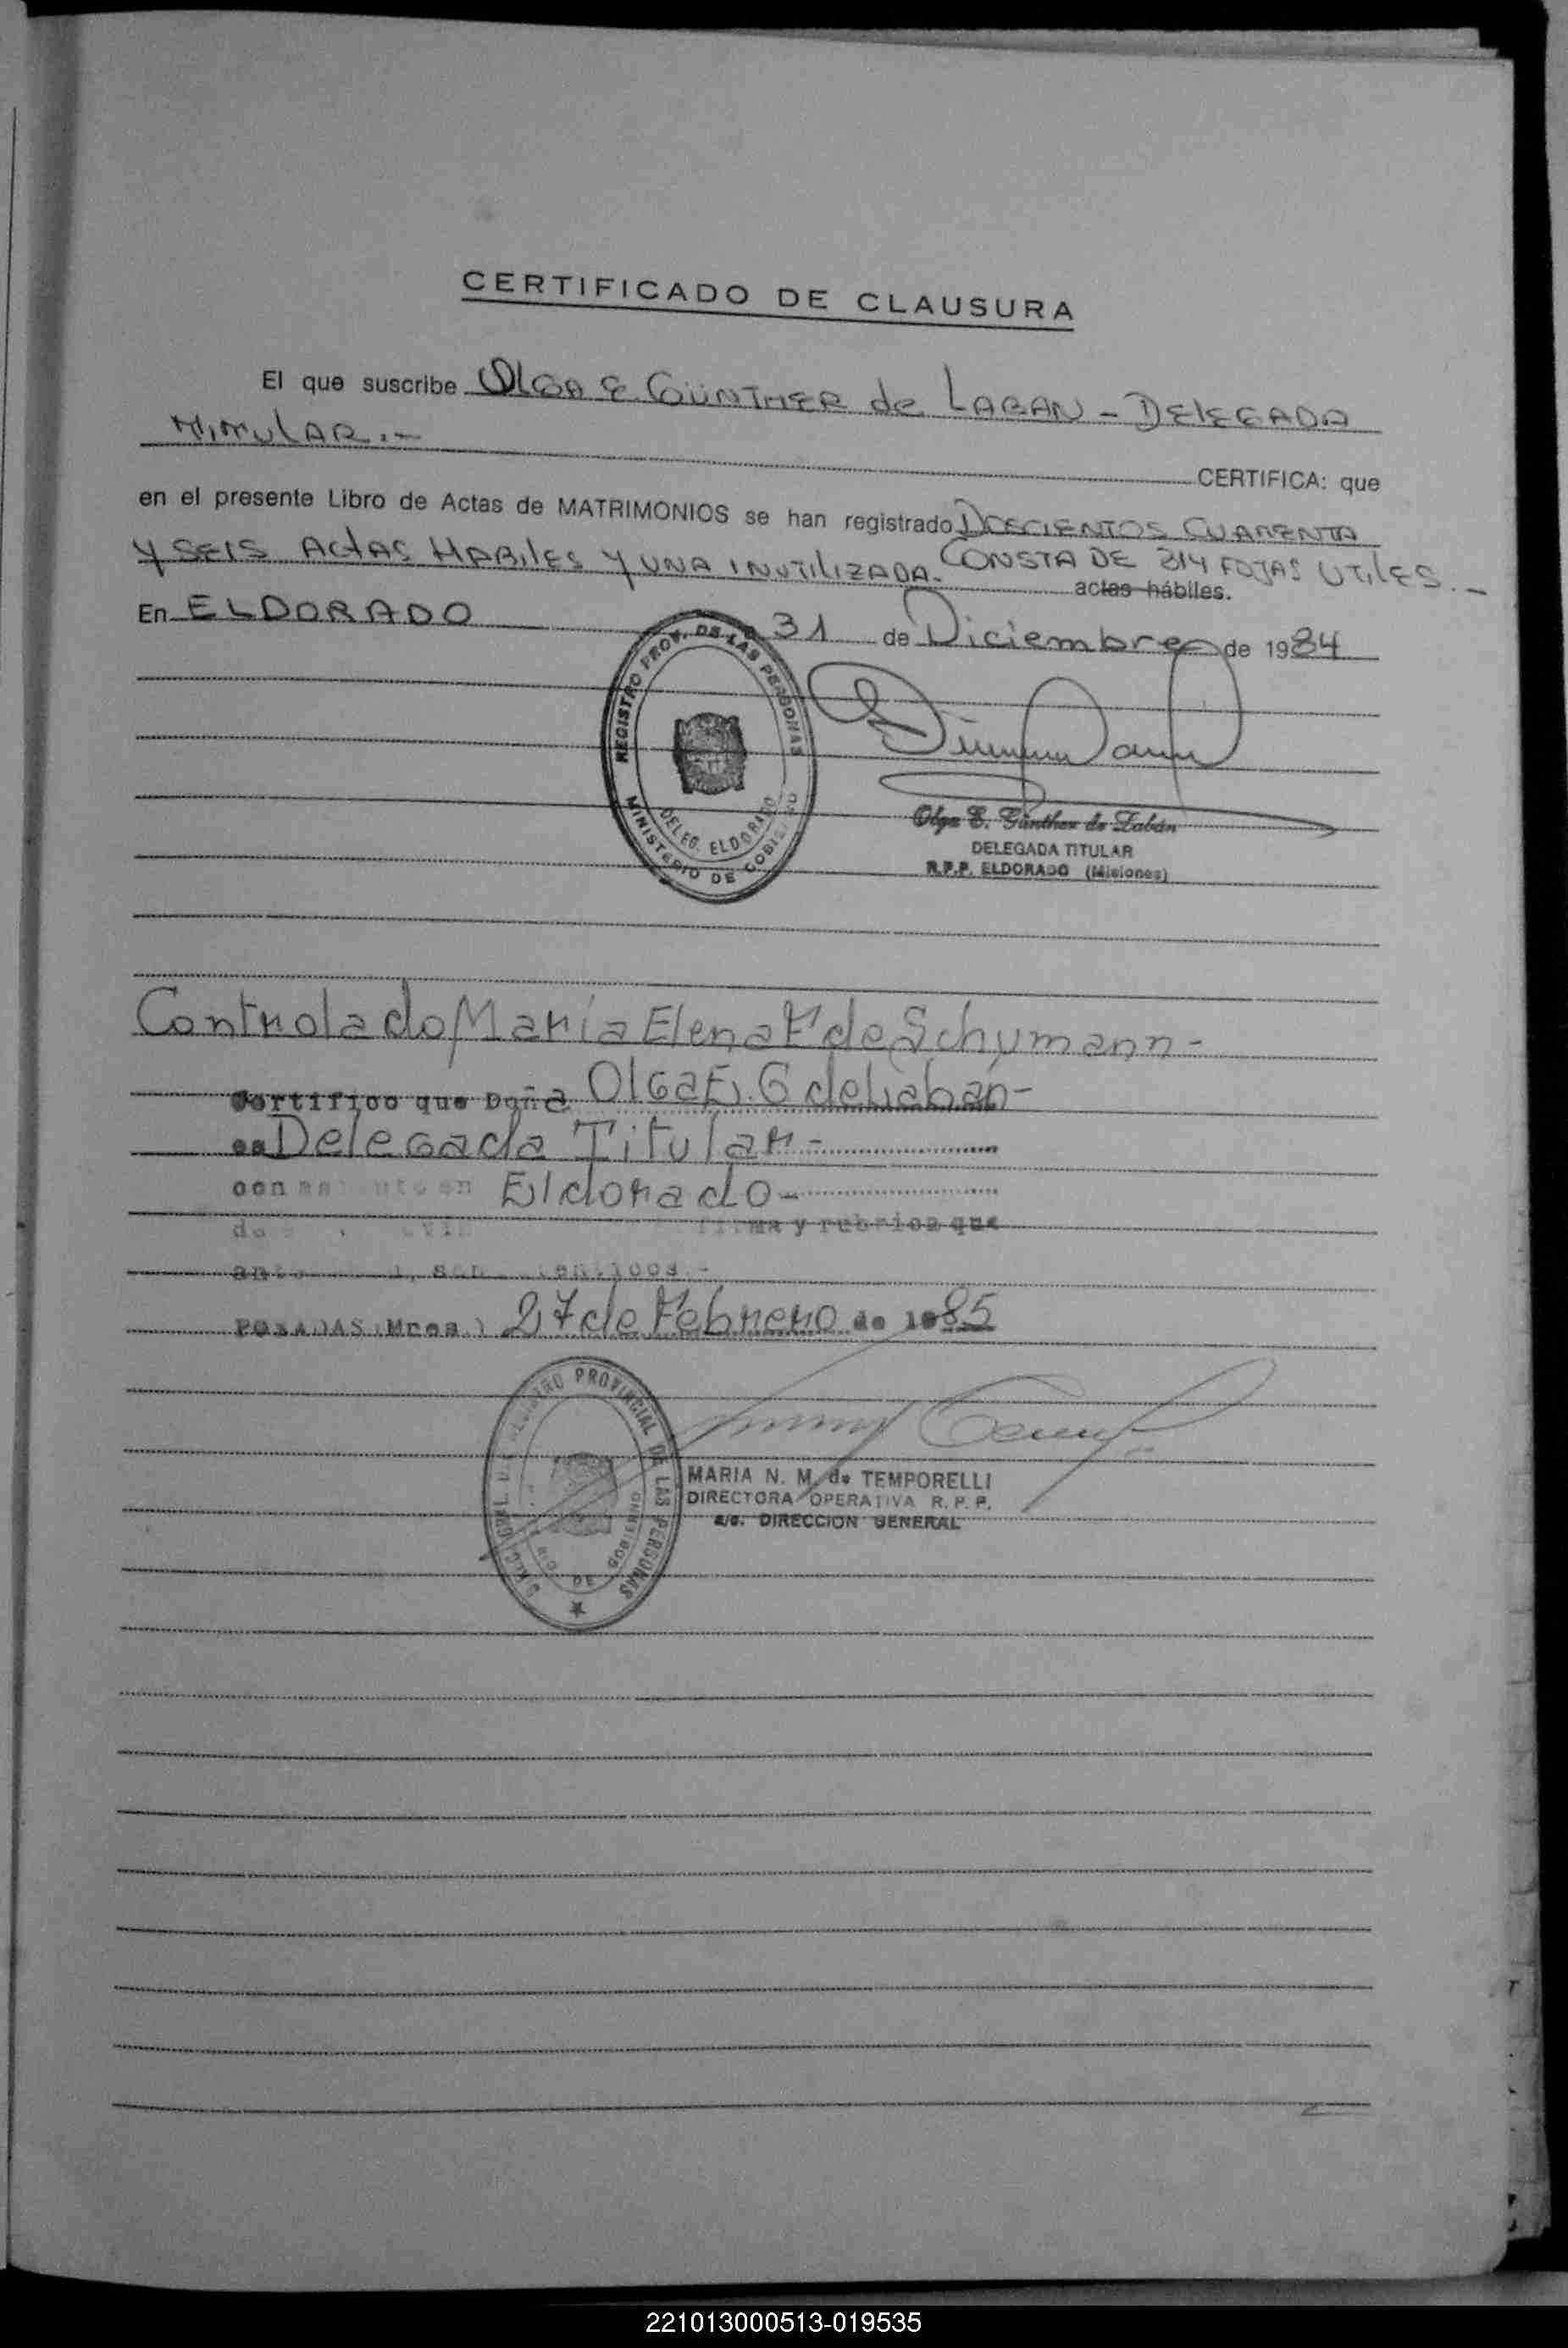 CERTIFICADO DE CLAUSURA
El que suscribe OLGA E. GÜNTHER de LABAN - DELEGADA
TITULAR.-
CERTIFICA: que
en el presente Libro de Actas de MATRIMONIOS se han registrado DOCCIENTOS CUARENTA
Y SEIS ACTAS HABILES Y UNA INUTILIZADA. CONSTA DE 314 FOJAS UTILES.-
actas hábiles.
En ELDORADO 31 de Diciembre de 1984
REGISTRO PROV. DE LAS PERSONAS
DELEG. ELDORADO
MINISTERIO DE GOBIERNO
Olga E. Günther de Labán
DELEGADA TITULAR
R.P.P. ELDORADO (Misiones)
Controlado María Elena F de Schumann-
Certifico que Doña Olga E. G de Labán-
es Delegada Titular-
con en Eldorado-
firma y rubrica que
POSADAS (Mnes.) 27 de Febrero de 1985
REGISTRO PROVINCIAL DE LAS PERSONAS
DE GOBIERNO
MARIA N. M. de TEMPORELLI
DIRECTORA OPERATIVA R. P. P.
a/c. DIRECCION GENERAL
221013000513-019535